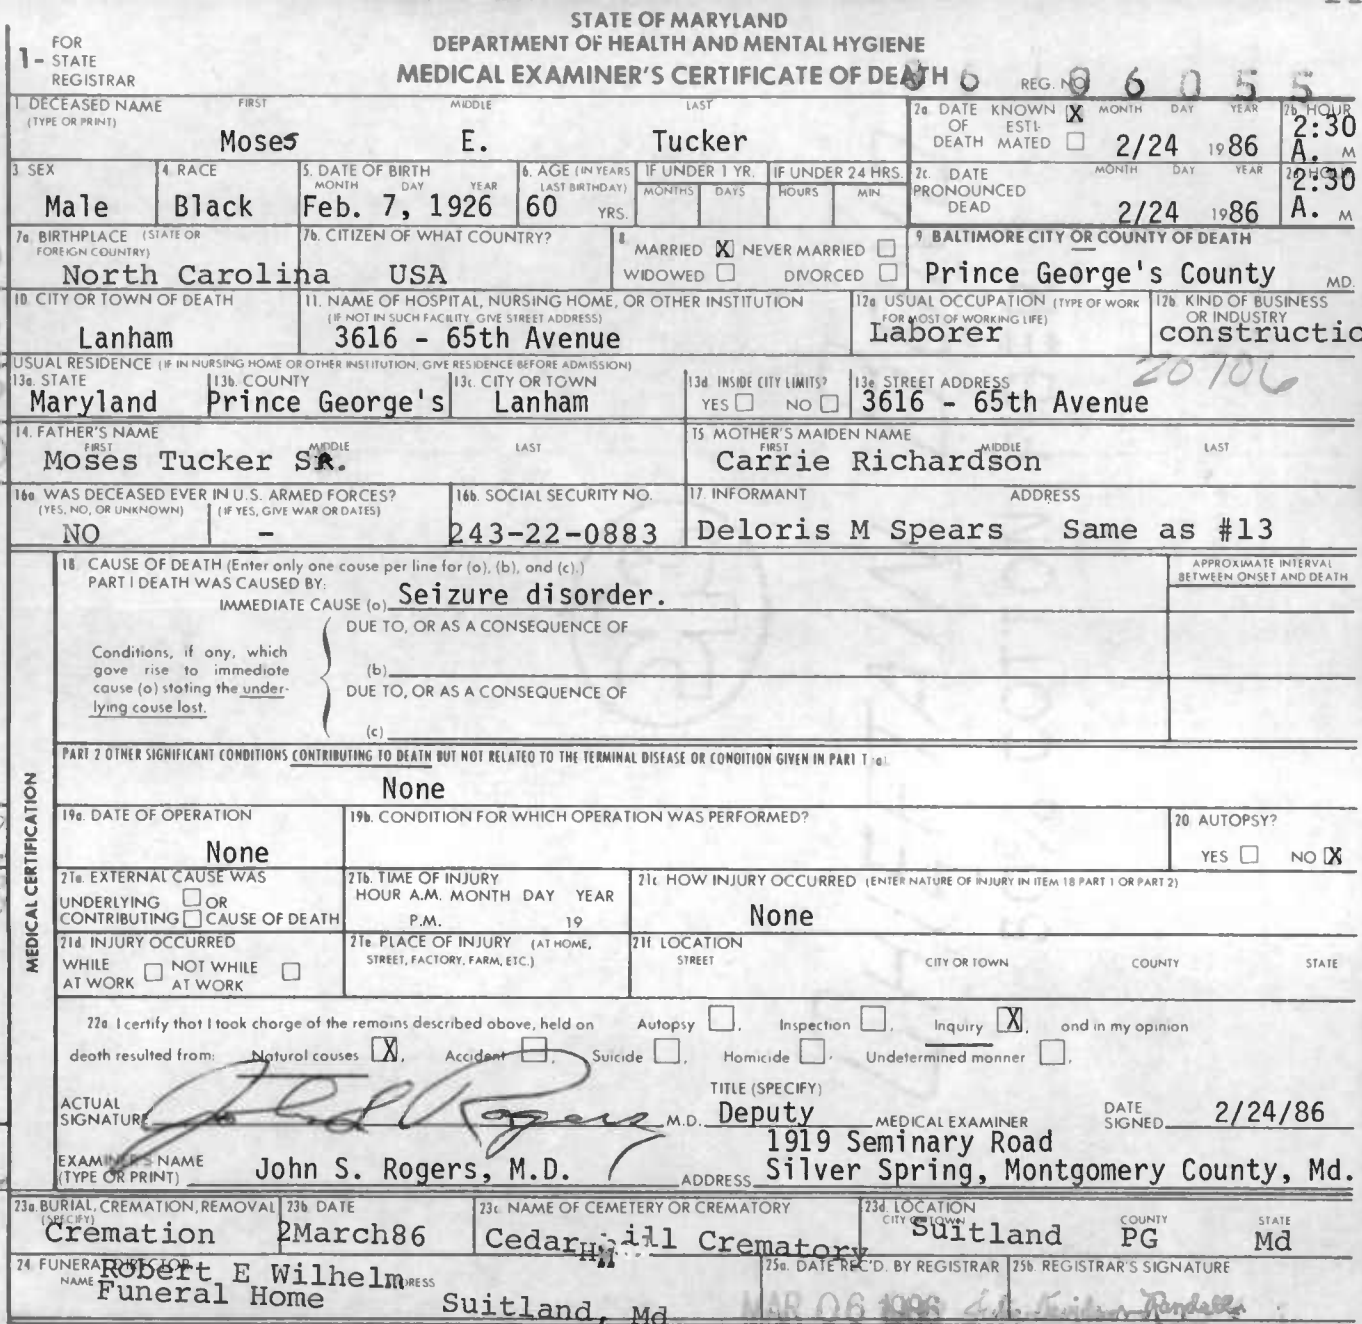 STATE OF MARYLAND
DEPARTMENT OF HEALTH AND MENTAL HYGIENE
MEDICAL EXAMINER'S CERTIFICATE OF DEATH
1- FOR STATE REGISTRAR
REG. NO. 86 06055
1. DECEASED NAME (TYPE OR PRINT) FIRST MIDDLE LAST
Moses E. Tucker
2a. DATE OF DEATH KNOWN X ESTIMATED MONTH DAY YEAR 2/24 1986
2b. HOUR 2:30 A. M
3. SEX Male
4. RACE Black
5. DATE OF BIRTH MONTH DAY YEAR Feb. 7, 1926
6. AGE (IN YEARS LAST BIRTHDAY) 60 YRS.
IF UNDER 1 YR. MONTHS DAYS
IF UNDER 24 HRS. HOURS MIN.
2c. DATE PRONOUNCED DEAD MONTH DAY YEAR 2/24 1986
2:30 A. M
7a. BIRTHPLACE (STATE OR FOREIGN COUNTRY) North Carolina
7b. CITIZEN OF WHAT COUNTRY? USA
8. MARRIED X NEVER MARRIED
WIDOWED DIVORCED
9. BALTIMORE CITY OR COUNTY OF DEATH
Prince George's County MD.
10. CITY OR TOWN OF DEATH Lanham
11. NAME OF HOSPITAL, NURSING HOME, OR OTHER INSTITUTION
(IF NOT IN SUCH FACILITY, GIVE STREET ADDRESS)
3616 - 65th Avenue
12a. USUAL OCCUPATION (TYPE OF WORK FOR MOST OF WORKING LIFE) Laborer
12b. KIND OF BUSINESS OR INDUSTRY constructio
USUAL RESIDENCE (IF IN NURSING HOME OR OTHER INSTITUTION, GIVE RESIDENCE BEFORE ADMISSION)
20706
13a. STATE Maryland
13b. COUNTY Prince George's
13c. CITY OR TOWN Lanham
13d. INSIDE CITY LIMITS? YES NO
13e. STREET ADDRESS 3616 - 65th Avenue
14. FATHER'S NAME FIRST MIDDLE LAST
Moses Tucker SR.
15. MOTHER'S MAIDEN NAME FIRST MIDDLE LAST
Carrie Richardson
16a. WAS DECEASED EVER IN U.S. ARMED FORCES?
(YES, NO, OR UNKNOWN) (IF YES, GIVE WAR OR DATES)
NO -
16b. SOCIAL SECURITY NO. 243-22-0883
17. INFORMANT ADDRESS
Deloris M Spears Same as #13
MEDICAL CERTIFICATION
18. CAUSE OF DEATH (Enter only one cause per line for (a), (b), and (c).)
PART I DEATH WAS CAUSED BY:
IMMEDIATE CAUSE (a) Seizure disorder.
APPROXIMATE INTERVAL BETWEEN ONSET AND DEATH
DUE TO, OR AS A CONSEQUENCE OF
Conditions, if any, which gave rise to immediate cause (a) stating the underlying cause last.
(b)
DUE TO, OR AS A CONSEQUENCE OF
(c)
PART 2 OTHER SIGNIFICANT CONDITIONS CONTRIBUTING TO DEATH BUT NOT RELATED TO THE TERMINAL DISEASE OR CONDITION GIVEN IN PART 1 (a)
None
19a. DATE OF OPERATION None
19b. CONDITION FOR WHICH OPERATION WAS PERFORMED?
20. AUTOPSY? YES NO X
21a. EXTERNAL CAUSE WAS
UNDERLYING OR
CONTRIBUTING CAUSE OF DEATH
21b. TIME OF INJURY
HOUR A.M. MONTH DAY YEAR
P.M. 19
21c. HOW INJURY OCCURRED (ENTER NATURE OF INJURY IN ITEM 18 PART 1 OR PART 2)
None
21d. INJURY OCCURRED
WHILE AT WORK NOT WHILE AT WORK
21e. PLACE OF INJURY (AT HOME, STREET, FACTORY, FARM, ETC.)
21f. LOCATION
STREET CITY OR TOWN COUNTY STATE
22a. I certify that I took charge of the remains described above, held on Autopsy, Inspection, Inquiry X, and in my opinion
death resulted from: Natural causes X, Accident, Suicide, Homicide, Undetermined manner.
ACTUAL SIGNATURE John S Rogers M.D.
TITLE (SPECIFY) Deputy MEDICAL EXAMINER
DATE SIGNED 2/24/86
EXAMINER'S NAME (TYPE OR PRINT) John S. Rogers, M.D.
ADDRESS 1919 Seminary Road
Silver Spring, Montgomery County, Md.
23a. BURIAL, CREMATION, REMOVAL (SPECIFY) Cremation
23b. DATE 2March86
23c. NAME OF CEMETERY OR CREMATORY Cedar Hill Crematory
23d. LOCATION CITY OR TOWN Suitland COUNTY PG STATE Md
24. FUNERAL DIRECTOR NAME Robert E Wilhelm Funeral Home ADDRESS Suitland, Md
25a. DATE REC'D. BY REGISTRAR MAR 06 1986
25b. REGISTRAR'S SIGNATURE